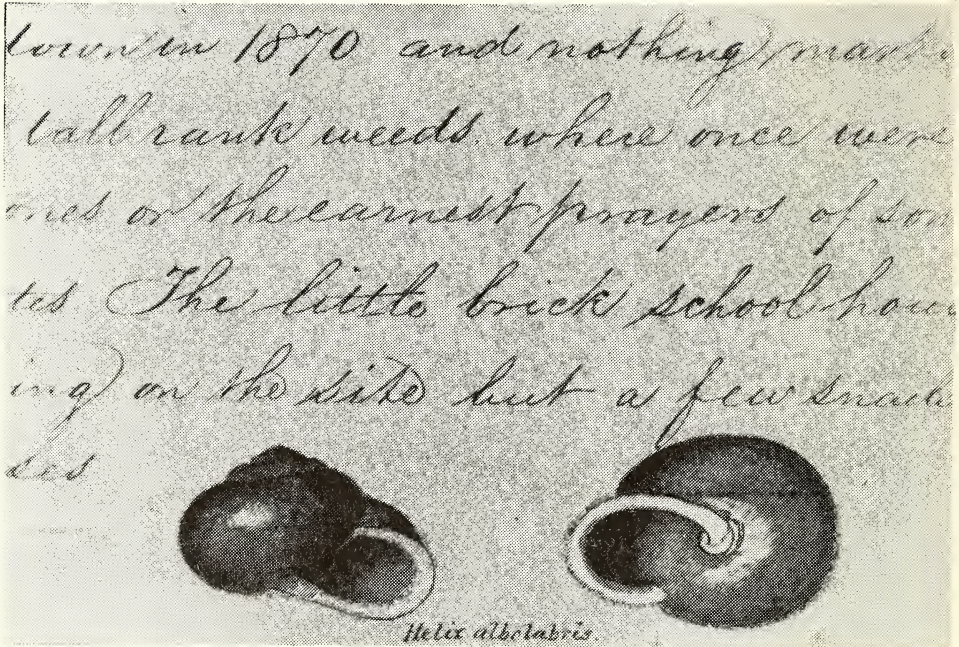 town in 1870 and nothing mark
tall rank weeds where once were
ones or the earnest prayers of som
tes The little brick school hous
ing on the site but a few snails
ses
Helix albolabris.